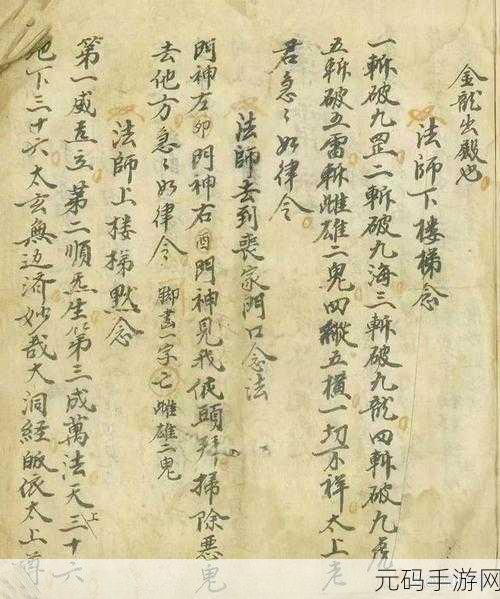 金龍出殿也
法師下楼梯念
一斬破九罡二斬破九海三斬破九龍四斬破九虎
五斬破五雷斬雌雄二鬼四縱五横一切不祥太上老
君急〻如律令
法師去到喪家門口念法
門神左卯門神右酉門神見我低頭拜掃除悪鬼
去他方急〻如律令 脚畫一字 亡雌雄二鬼
法師上楼梯黙念
第一威直立第二順炁生第三成萬法天上三十六
地下三十六太玄無边済妙哉大洞経皈依太上尊
元码手游网